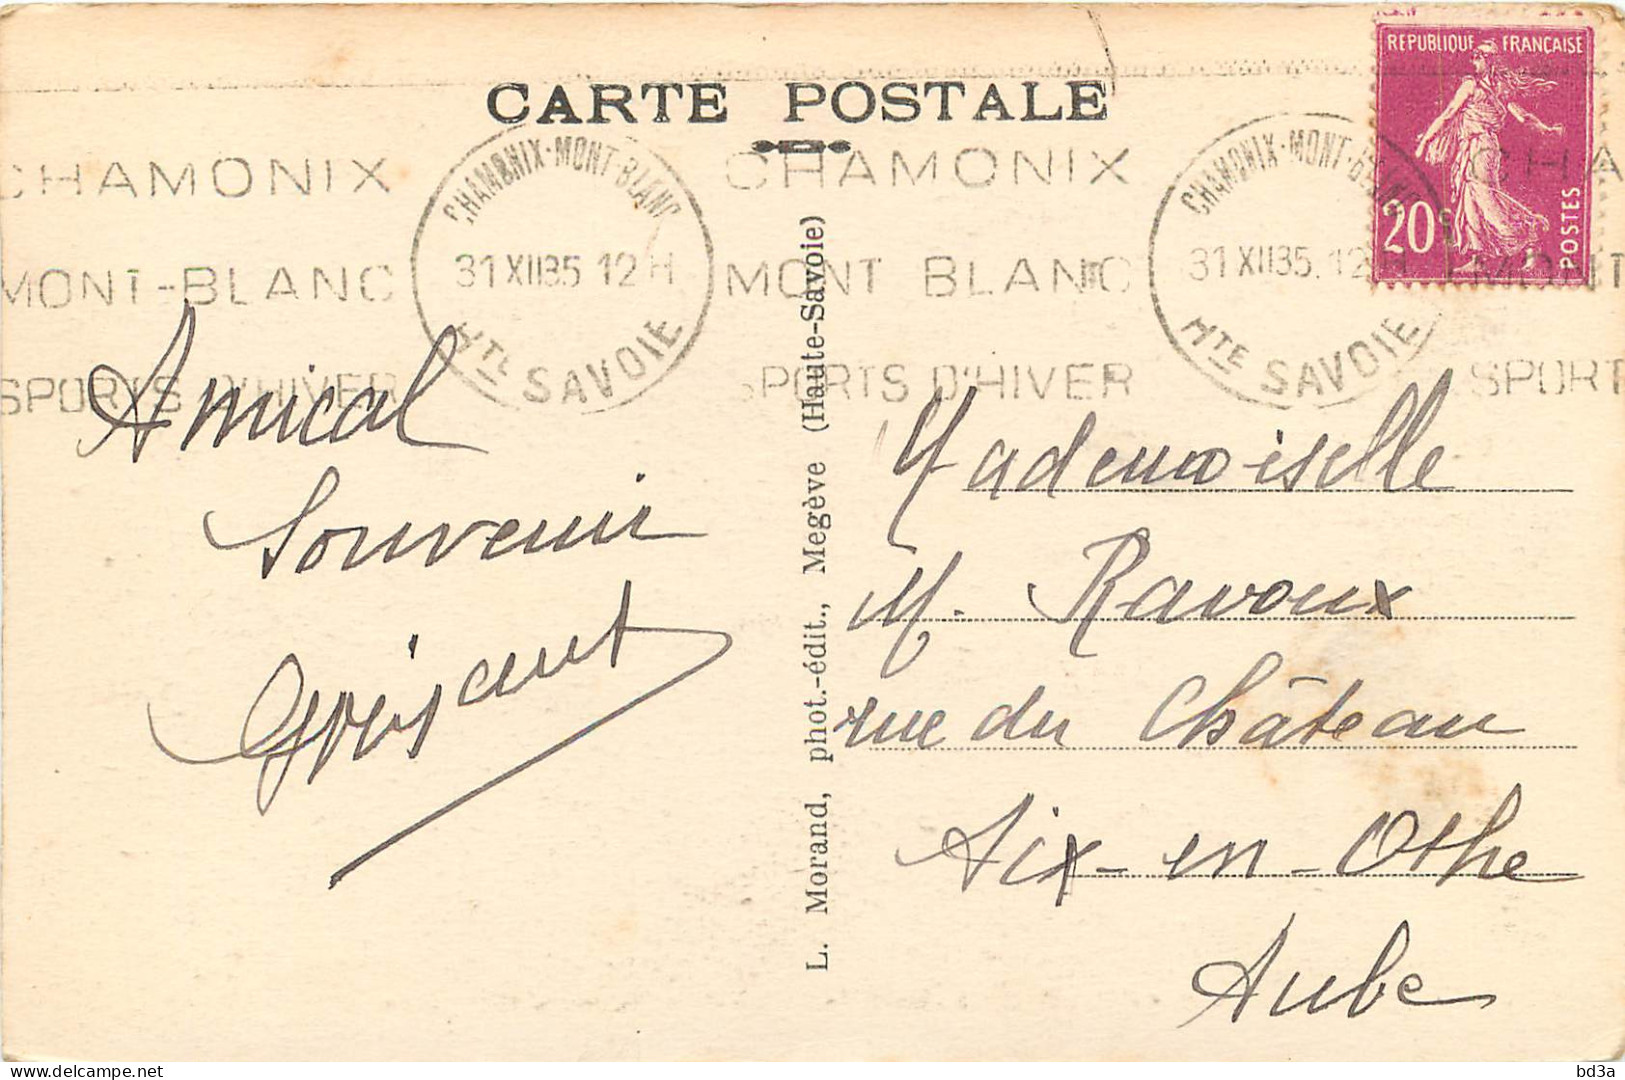 CARTE POSTALE
REPUBLIQUE FRANÇAISE
20c
POSTES
CHAMONIX
MONT-BLANC
SPORTS D'HIVER
CHAMONIX-MONT-BLANC
31 XII 35 12 H
HTE SAVOIE
CHAMONIX
MONT BLANC
SPORTS D'HIVER
CHAMONIX-MONT-BLANC
31 XII 35. 12 H
HTE SAVOIE
CHA
MONT
SPORT
Amical
Souvenir
L. Morand, phot.-édit., Megève (Haute-Savoie)
Mademoiselle
M. Ravoux
rue du Château
Aix-en-Othe
Aube
bd3a